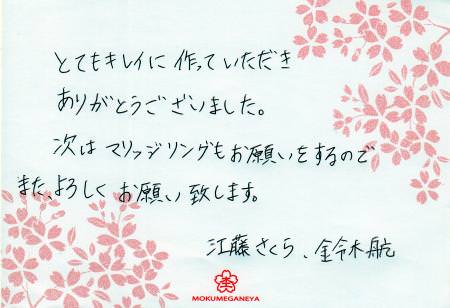 とてもキレイに作っていただき
ありがとうございました。
次はマリッジリングもお願いをするので
また、よろしくお願い致します。
江藤さくら、鈴木航
MOKUMEGANEYA